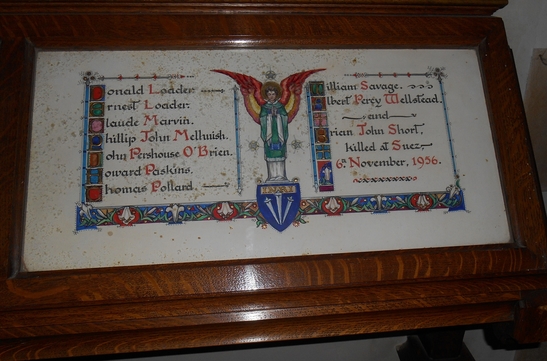 Donald Loader.
Ernest Loader.
Claude Marvin.
Phillip John Melhuish.
John Pershouse O'Brien.
Howard Paskins.
Thomas Pollard.
William Savage.
Albert Percy Wellstead.
and
Brian John Short,
killed at Suez
6th November, 1956.